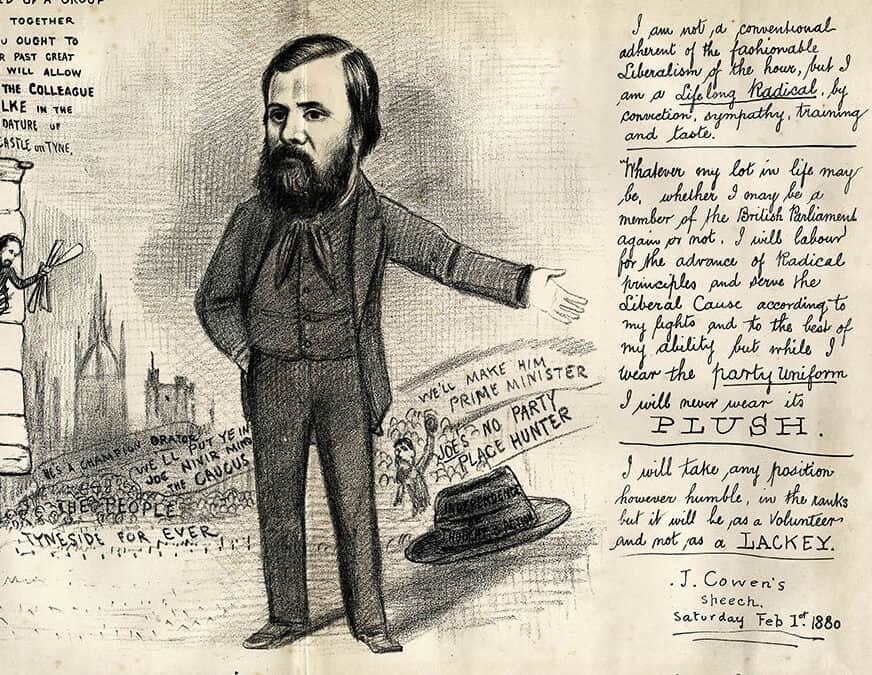 OF A GROUP
TOGETHER
U OUGHT TO
R PAST GREAT
WILL ALLOW
THE COLLEAGUE
LKE IN THE
DATURE OF
CASTLE on TYNE.
HE'S A CHAMPION ORATOR
WE'LL PUT YE IN
JOE NIVIR MIND
THE CAUCUS
THE PEOPLE
TYNESIDE FOR EVER
WE'LL MAKE HIM
PRIME MINISTER
JOE'S NO PARTY
PLACE HUNTER
INDEPENDENCE
OF
THOUGHT & ACTION
I am not a conventional
adherent of the fashionable
Liberalism of the hour, but I
am a Lifelong Radical, by
conviction, sympathy, training
and taste.
"Whatever my lot in life may
be, whether I may be a
member of the British Parliament
again or not, I will labour
for the advance of Radical
principles and serve the
Liberal Cause according to
my lights and to the best of
my ability but while I
wear the party uniform
I will never wear its
PLUSH.
I will take any position
however humble, in the ranks
but it will be as a Volunteer
and not as a LACKEY.
J. Cowen's
speech.
Saturday Feb 1st 1880